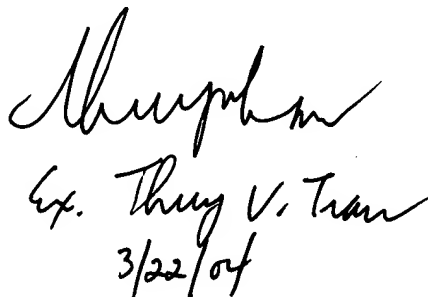 Ex. Thuy V. Tran
3/22/04